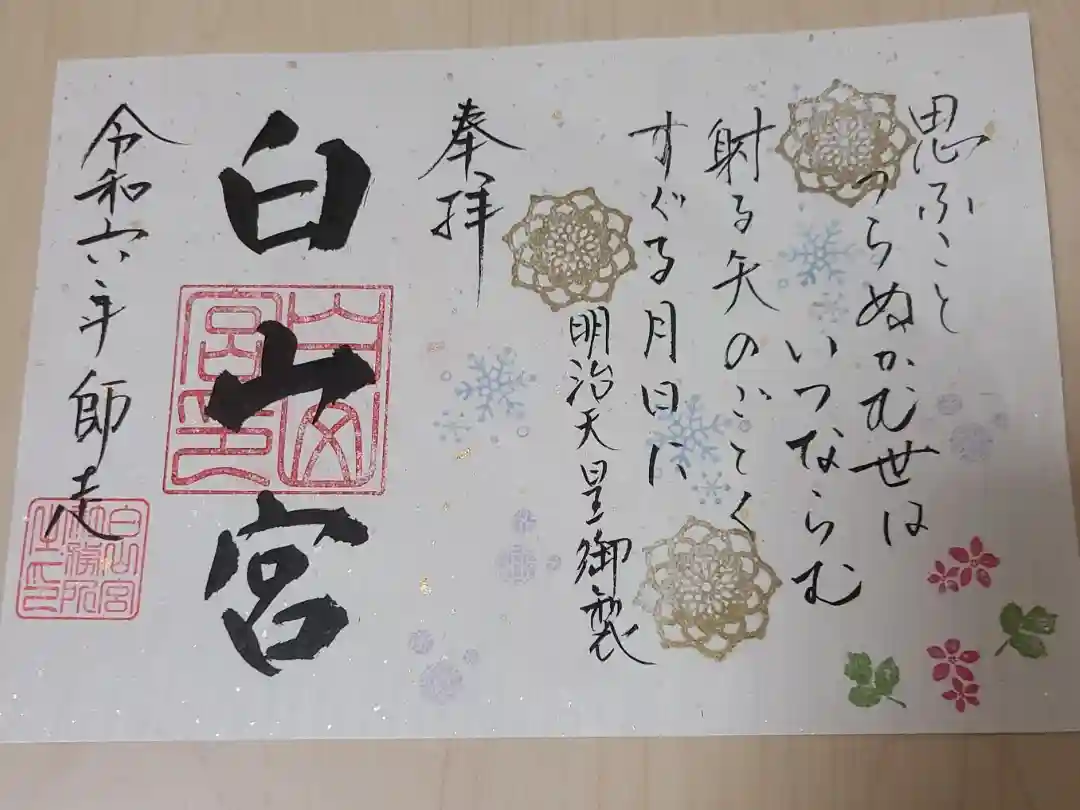 思ふこと
つらぬかむ世は
いつならむ
射る矢のごとく
すぐる月日に
明治天皇御製
奉拝
白山宮
令和六年師走
白山宮